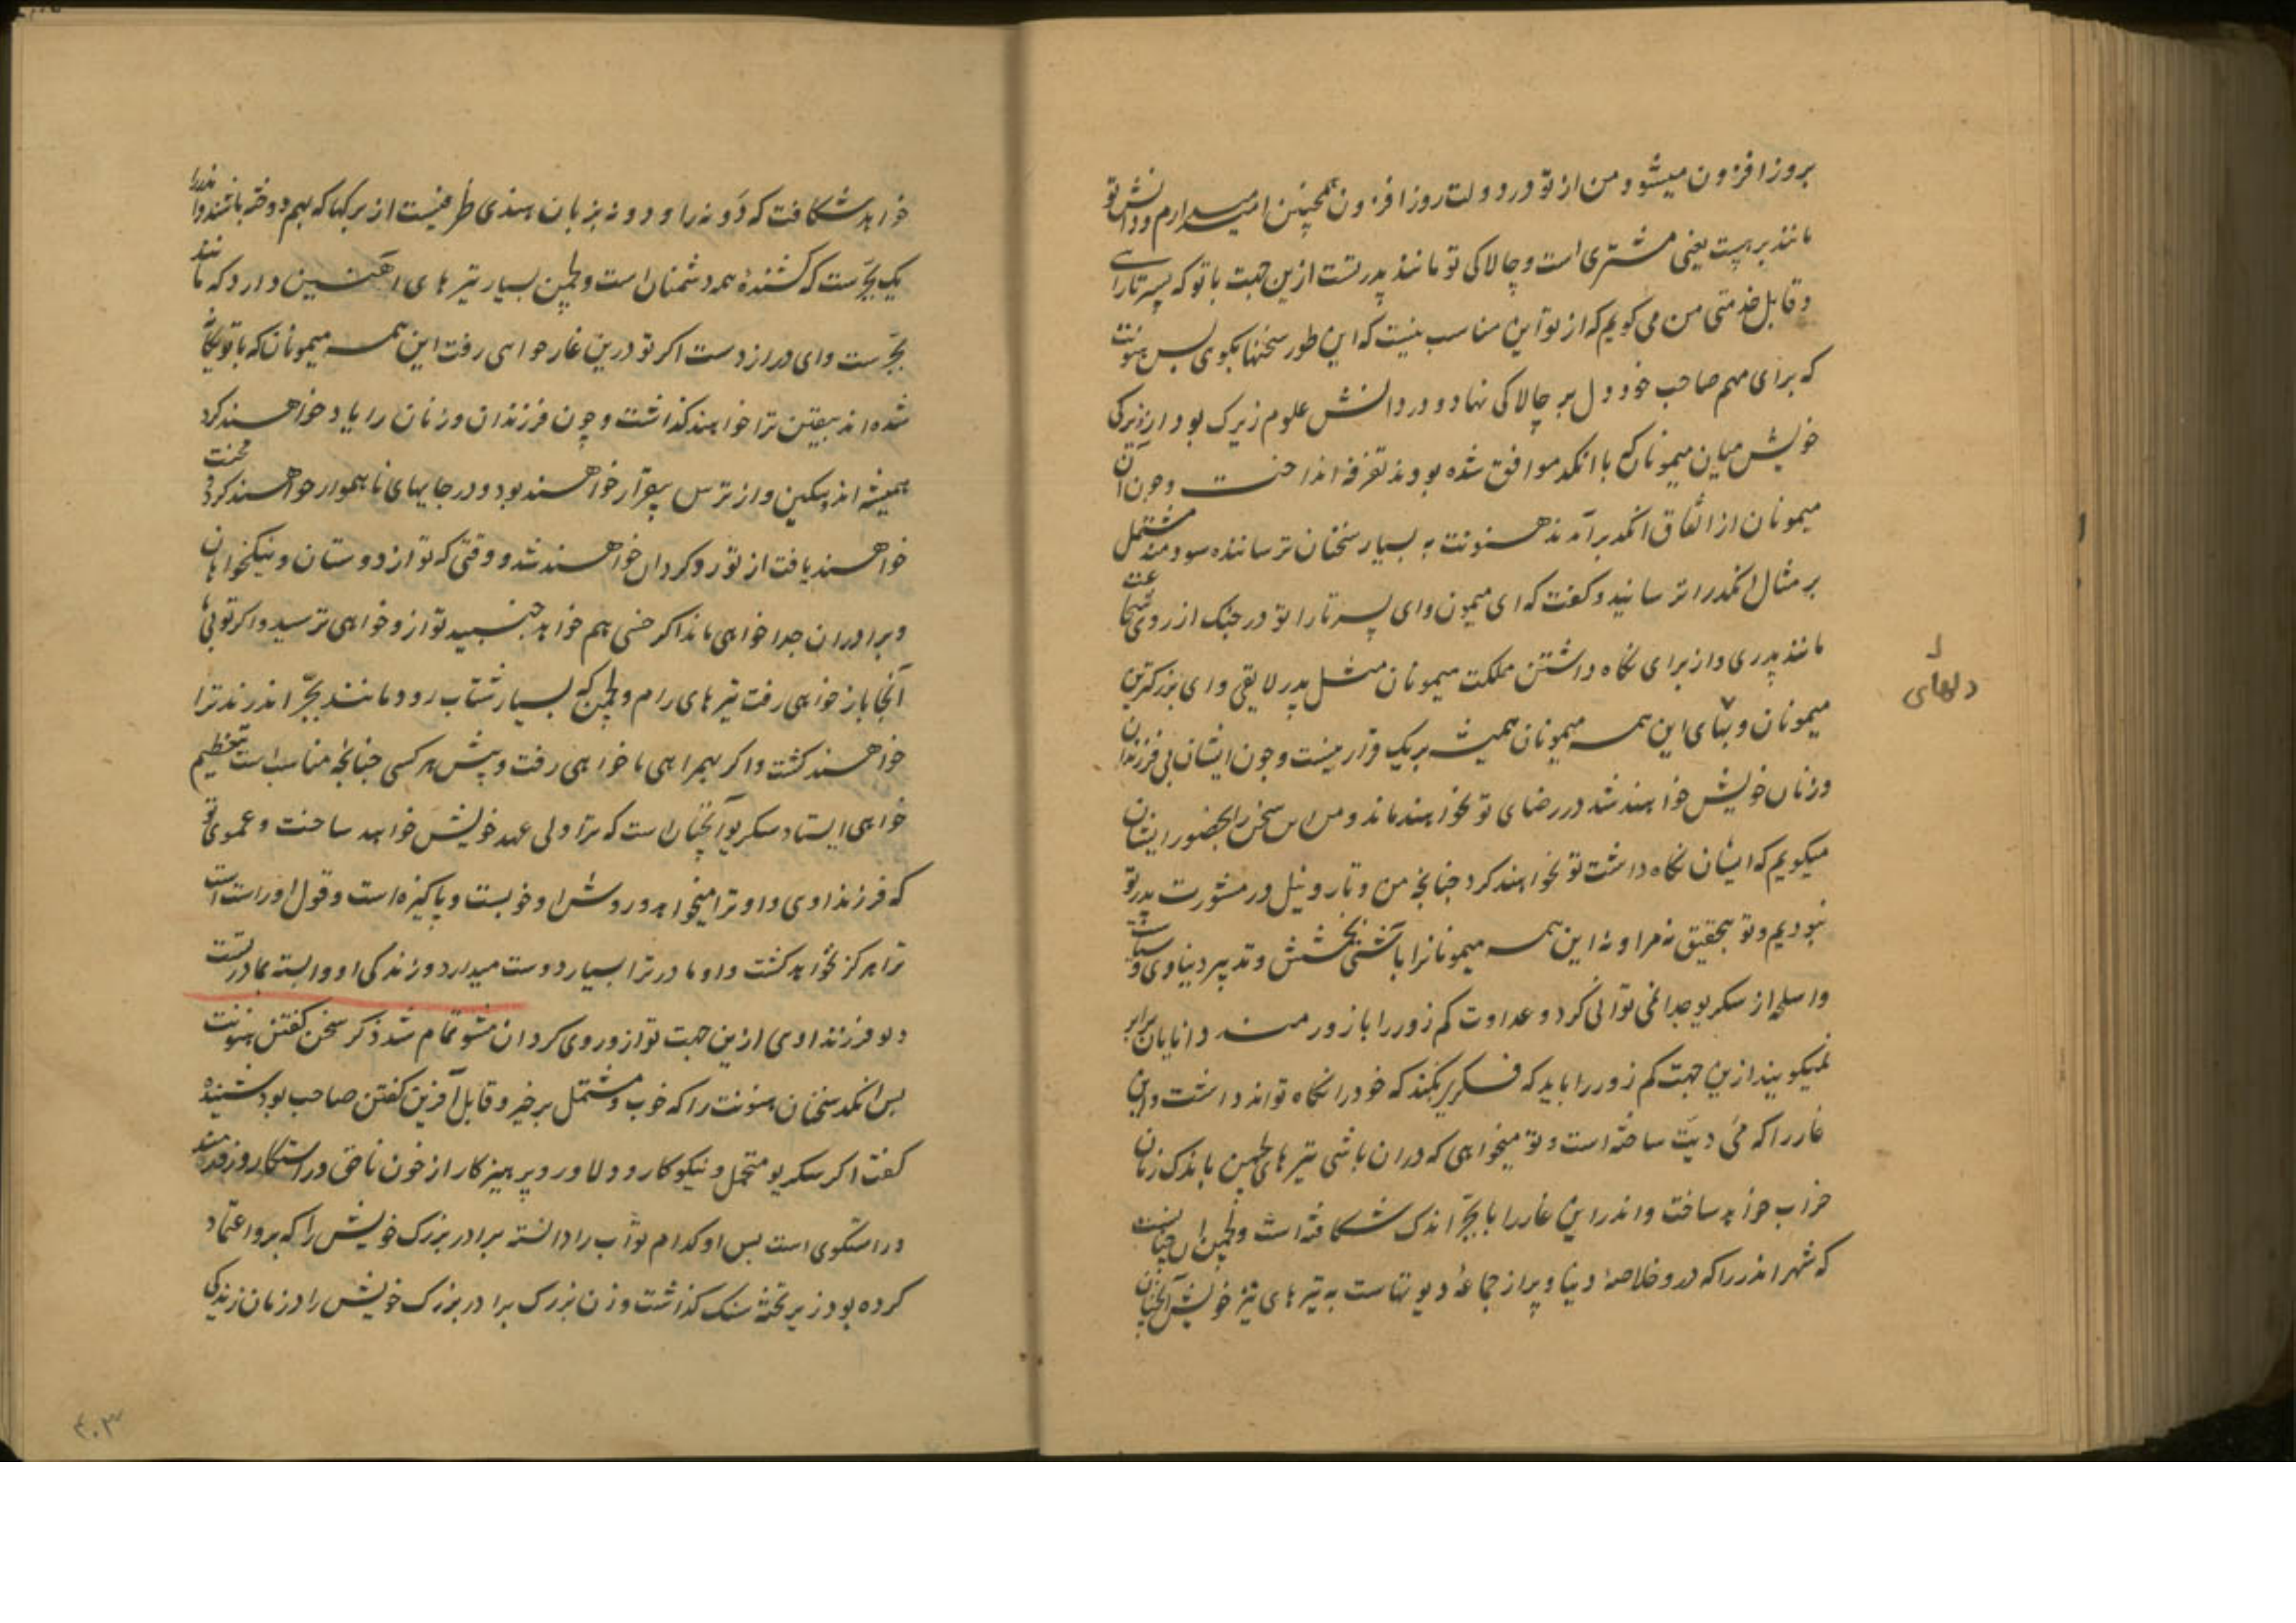 بروز افزون میشود و من از تو در دولت روز افزون همچنین امیدوارم و دانش تو
مانند برهپت یعنی مشتری است و چالاکی تو مانند پدر تست ازین جهت با تو که پسر تارا
و قابل خدمتی من می کویم که از تو این مناسب نیست که این طور سخنها بکوی پس هنونت
که برای مهم صاحب خود دل بر چالاکی نهاد و در دانش علوم زیرک بود از زیرکی
خویش میان میمونان که با انکد موافق شده بودند تفرقه انداخت و چون آن
میمونان از اتفاق انکد برآمدند هنونت به بسیار سخنان ترساننده سودمند مشتمل
بر مثال انکد را ترسانید و کفت که ای میمون و ای پسر تارا تو در جنک از روی شجاعت
مانند پدری و از برای نکاه داشتن مملکت میمونان مثل پدر لایقی و ای بزرکترین
میمونان این همه میمونان همیشه بر یک قرار نیست و چون ایشان بی فرزندان
دلهای
و زنان خویش خواهند شد در رضای تو نخواهند ماند و من این سخن را بحضور ایشان
میکویم که ایشان نکاه داشت تو نخواهند کرد چنانچه من و تار و نیل در مشورت پدر تو
نبودیم و تو بتحقیق نه مرا و نه این همه میمونانرا با آشتی و بخشش و تدبیر دنیاوی و سیاست
و اسلحه از سکریو جدا نمی توانی کرد و عداوت کم زور را با زورمند دانایان برابر
نمیکویند ازین جهت کم زور را باید که فکری بکند که خود را نکاه تواند داشت و این
غار را که می دیت ساخته است و تو میخواهی که در ان باشی تیر های لچمن باندک زمان
خراب خواهد ساخت و اندر این غار را با بجر اندک شکافته است و لچمن
که شهر اندر را که درو خلاصه دنیا و پر از جماعه دیوتهاست به تیر های تیز خویش آنچنان
خواهد شکافت که دونه را و دونه بزبان هندی ظرفیست از برکها که بهم دوخته باشند و اندر را
یک بجرست که کشنده همه دشمنان است و لچمن بسیار تیر های آهنین دارد که مانند
بجرست و ای دراز دست اکر تو درین غار خواهی رفت این همه میمونان که با تو یکجا
شده اند بیقین ترا خواهند کذاشت و چون فرزندان و زنان را یاد خواهند کرد
همیشه اندیکین و از ترس بیقرار خواهند بود و در جایهای ناهموار خواهند کردید محنت
خواهند یافت از تو روکردان خواهند شد و وقتی که تو از دوستان و نیکخواهان
و برادران جدا خواهی ماند اکر خسی هم خواهد جنبید تو ازو خواهی ترسید و اکر تو
آنجا باز خواهی رفت تیر های رام و لچمن که بسیار شتاب رو و مانند بجر اندرند ترا
خواهند کشت و اکر بهمراهی ما خواهی رفت و پیش هر کسی چنانچه مناسب است بتعظیم
خواهی ایستاد سکریو آنچنان است که ترا ولی عهد خویش خواهد ساخت و عموی تو
که فرزند اوی و او ترا میخواهد و روش او خوبست و پاکیزه است و قول او راست است
ترا هرکز نخواهد کشت و او مادر ترا بسیار دوست میدارد و زندکی او وابسته بمادر تست
و تو فرزند اوی ازین جهت تو ازو روی کردان مشو تمام شد ذکر سخن کفتن هنونت
پس انکد سخنان هنونت را که خوب و مشتمل بر خیر و قابل آفرین کفتن صاحب بود شنیده
کفت اکر سکریو متحمل و نیکوکار و دلاور و پرهیزکار از خون ناحق و راستکار و زورمند
و راستکوی است پس او کدام ثواب را دانسته برادر بزرک خویش را که برو اعتماد
کرده بود زیر تخته سنک کذاشت و زن بزرک برادر بزرک خویش را در زمان زندکی
۴۰۳